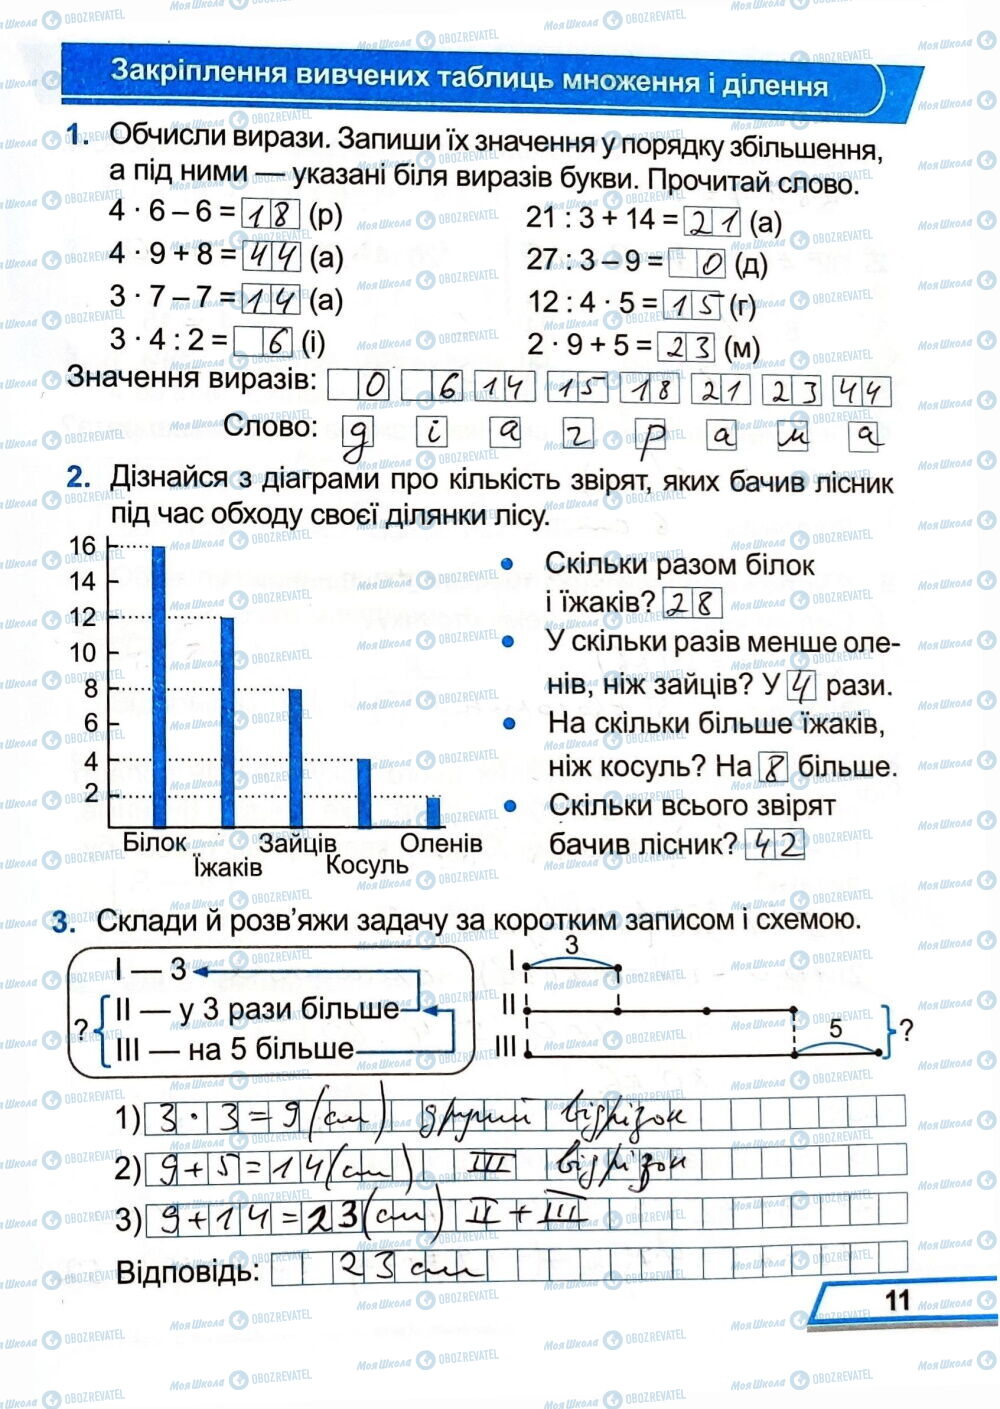 Закріплення вивчених таблиць множення і ділення
1. Обчисли вирази. Запиши їх значення у порядку збільшення,
а під ними — указані біля виразів букви. Прочитай слово.
4 · 6 – 6 = 18 (р)
21 : 3 + 14 = 21 (а)
4 · 9 + 8 = 44 (а)
27 : 3 – 9 = 0 (д)
3 · 7 – 7 = 14 (а)
12 : 4 · 5 = 15 (г)
3 · 4 : 2 = 6 (і)
2 · 9 + 5 = 23 (м)
Значення виразів: 0 6 14 15 18 21 23 44
Слово: д і а г р а м а
2. Дізнайся з діаграми про кількість звірят, яких бачив лісник
під час обходу своєї ділянки лісу.
16
14
12
10
8
6
4
2
Білок
Їжаків
Зайців
Косуль
Оленів
• Скільки разом білок
і їжаків? 28
• У скільки разів менше оле-
нів, ніж зайців? У 4 рази.
• На скільки більше їжаків,
ніж косуль? На 8 більше.
• Скільки всього звірят
бачив лісник? 42
3. Склади й розв’яжи задачу за коротким записом і схемою.
I — 3
? II — у 3 рази більше
III — на 5 більше
I 3
II
III 5 ?
1) 3 · 3 = 9 (см) другий відрізок
2) 9 + 5 = 14 (см) III відрізок
3) 9 + 14 = 23 (см) II + III
Відповідь: 23 см
11
МояШкола OBOZREVATEL